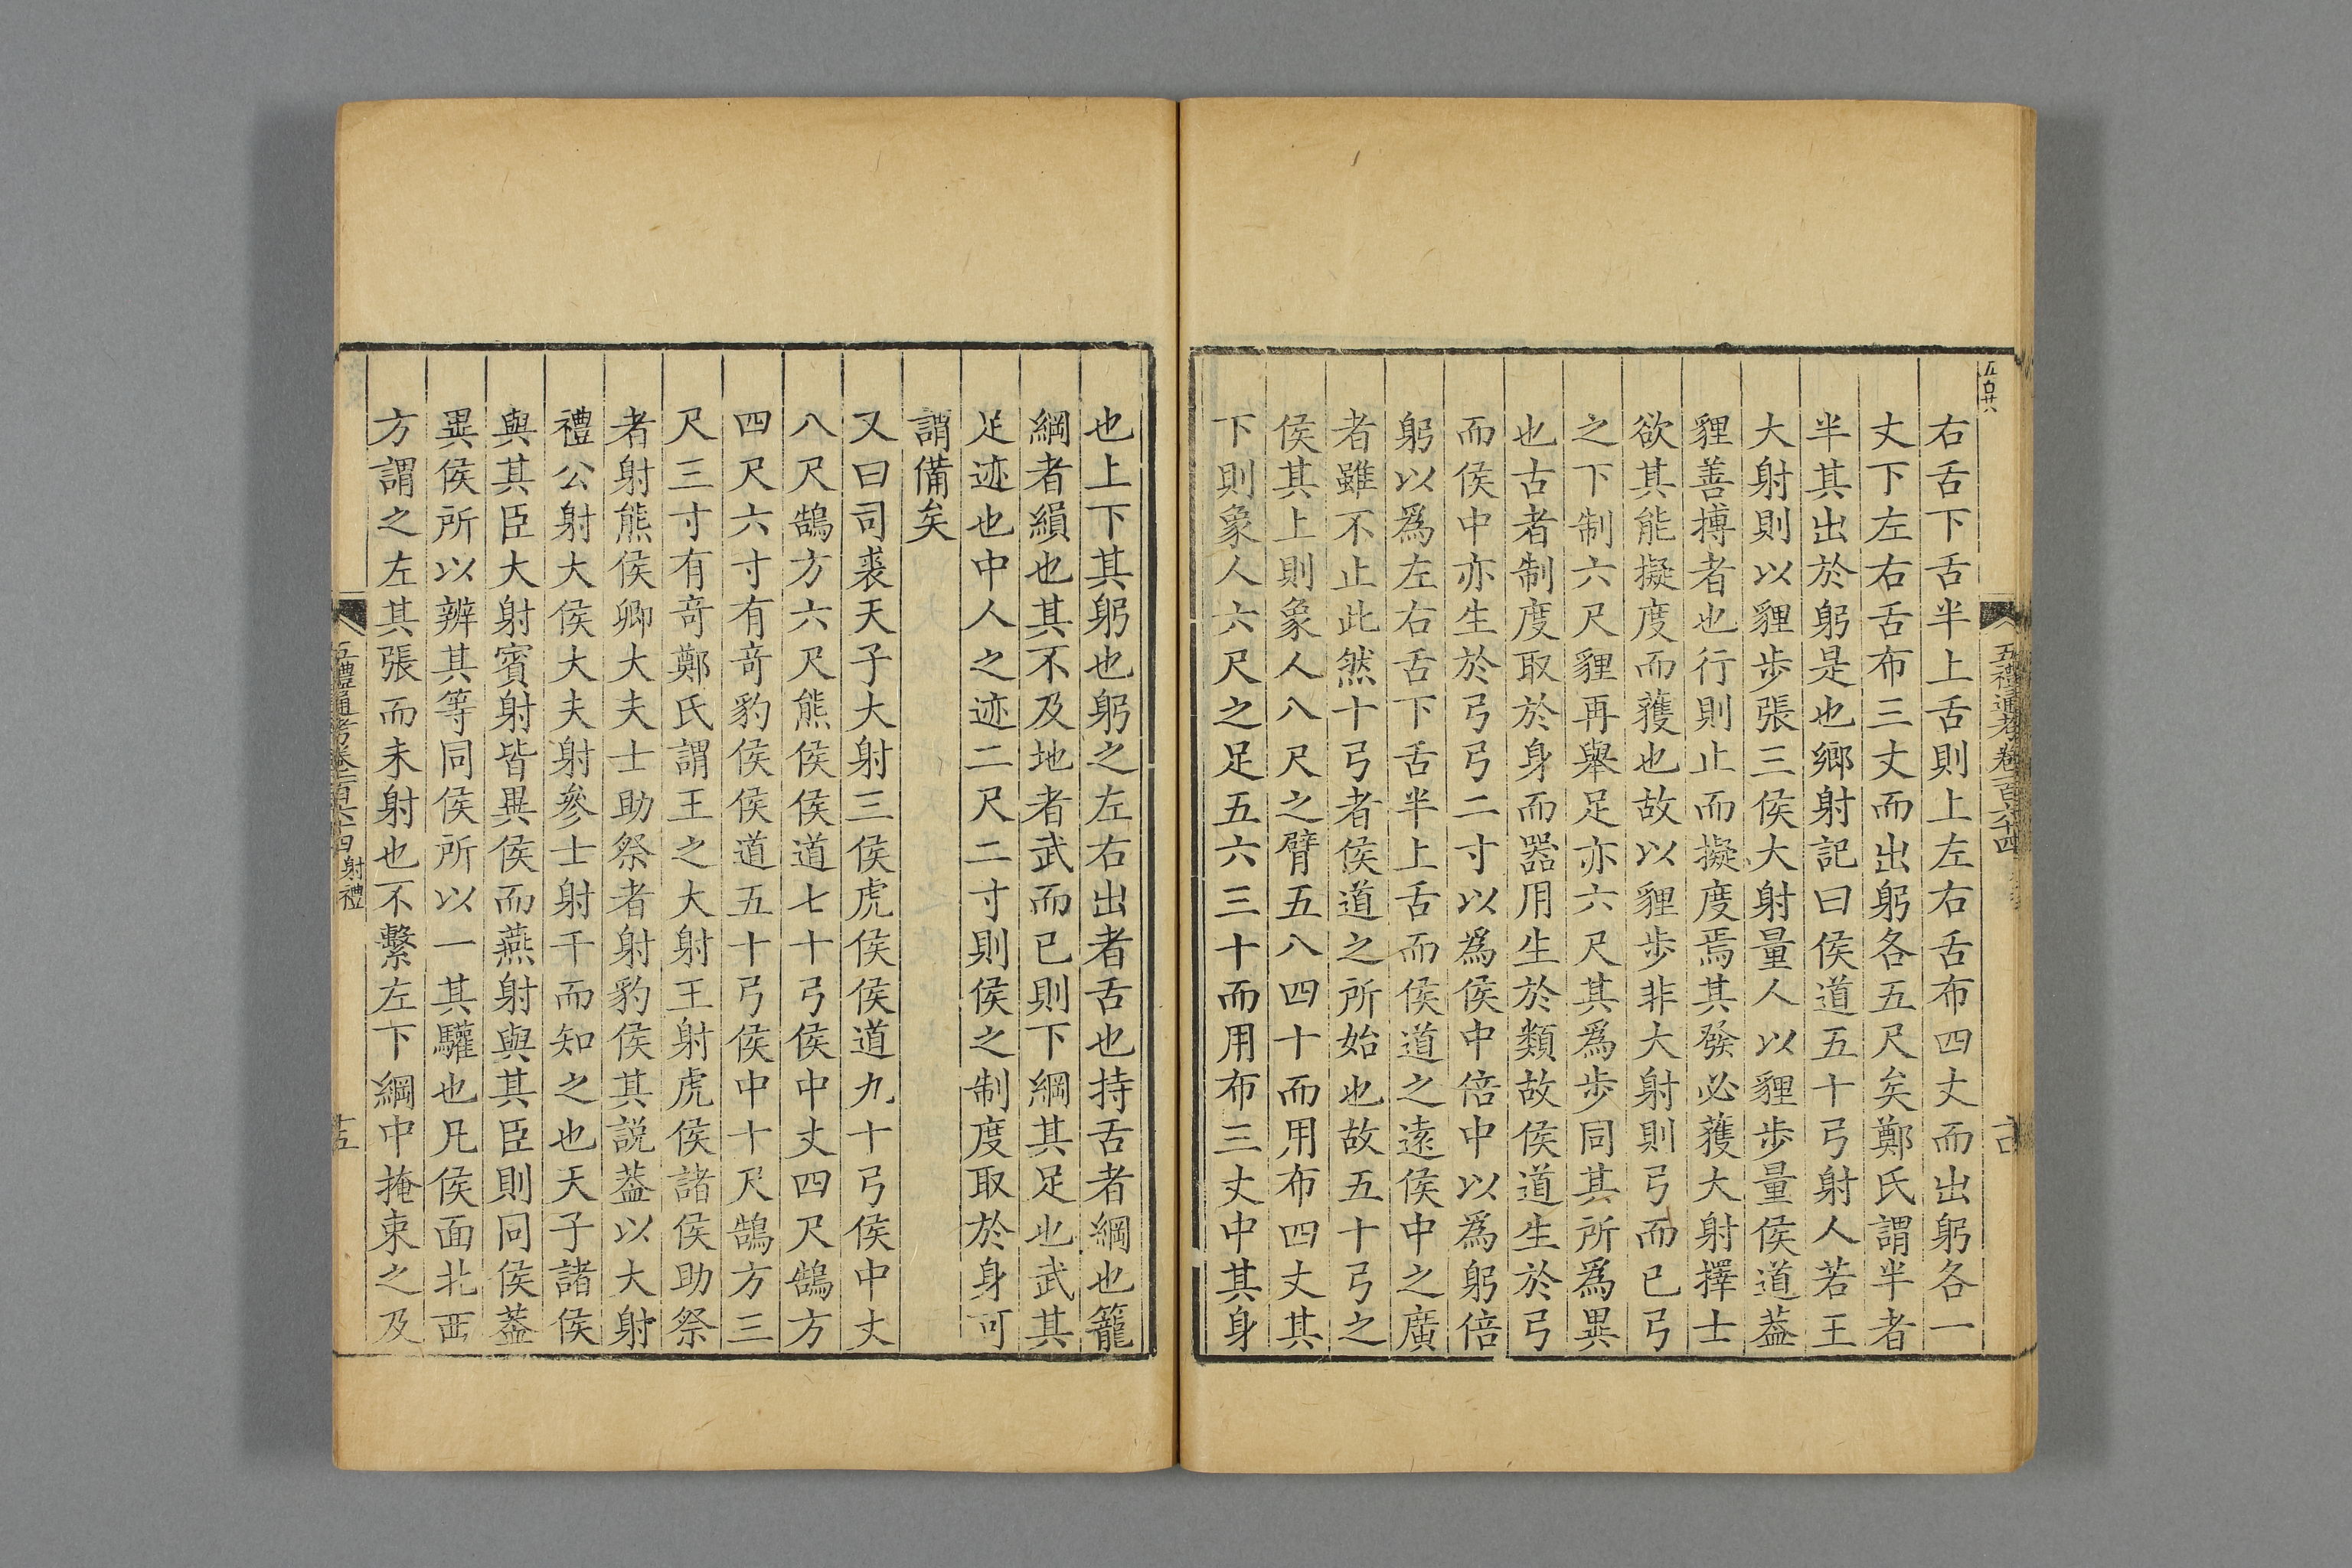 右舌下舌半上舌則上左右舌布四丈而出躬各一
丈下左右舌布三丈而出躬各五尺矣鄭氏謂半者
半其出於躬是也鄉射記曰侯道五十弓射人若王
大射則以貍步張三侯大射量人以貍步量侯道葢
貍善搏者也行則止而擬度焉其發必獲大射擇士
欲其能擬度而獲也故以貍步非大射則弓而已弓
之下制六尺貍再舉足亦六尺其爲步同其所爲異
也古者制度取於身而器用生於類故侯道生於弓
而侯中亦生於弓弓二寸以爲侯中倍中以爲躬倍
躬以爲左右舌下舌半上舌而侯道之遠侯中之廣
者雖不止此然十弓者侯道之所始也故五十弓之
侯其上則象人八尺之臂五八四十而用布四丈其
下則象人六尺之足五六三十而用布三丈中其身
也上下其躬也躬之左右出者舌也持舌者綱也籠
綱者縜也其不及地者武而已則下綱其足也武其
足迹也中人之迹二尺二寸則侯之制度取於身可
謂備矣
又曰司裘天子大射三侯虎侯侯道九十弓侯中丈
八尺鵠方六尺熊侯侯道七十弓侯中丈四尺鵠方
四尺六寸有奇豹侯侯道五十弓侯中十尺鵠方三
尺三寸有奇鄭氏謂王之大射王射虎侯諸侯助祭
者射熊侯卿大夫士助祭者射豹侯其説葢以大射
禮公射大侯大夫射參士射干而知之也天子諸侯
與其臣大射賓射皆異侯而燕射與其臣則同侯葢
異侯所以辨其等同侯所以一其驩也凡侯面北西
方謂之左其張而未射也不繫左下綱中掩束之及
五禮通考卷一百六十四 射禮
十五